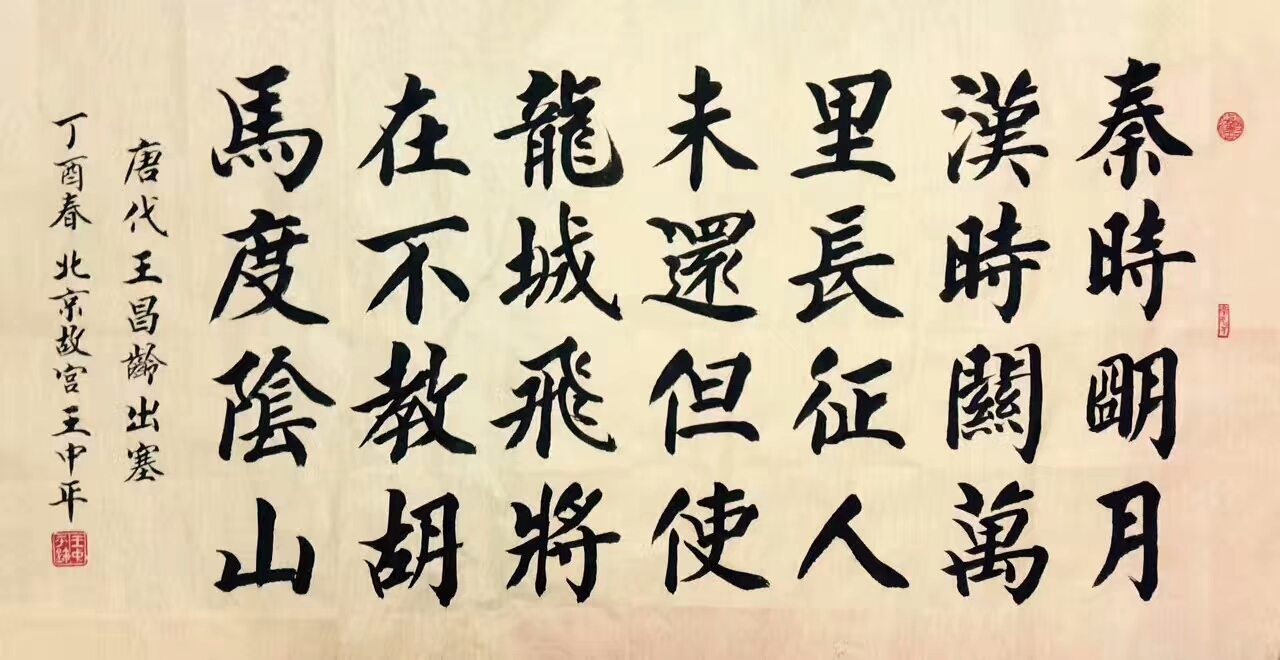 秦時明月
漢時關萬
里長征人
未還但使
龍城飛將
在不教胡
馬度陰山
唐代王昌齡出塞
丁酉春北京故宮王中平